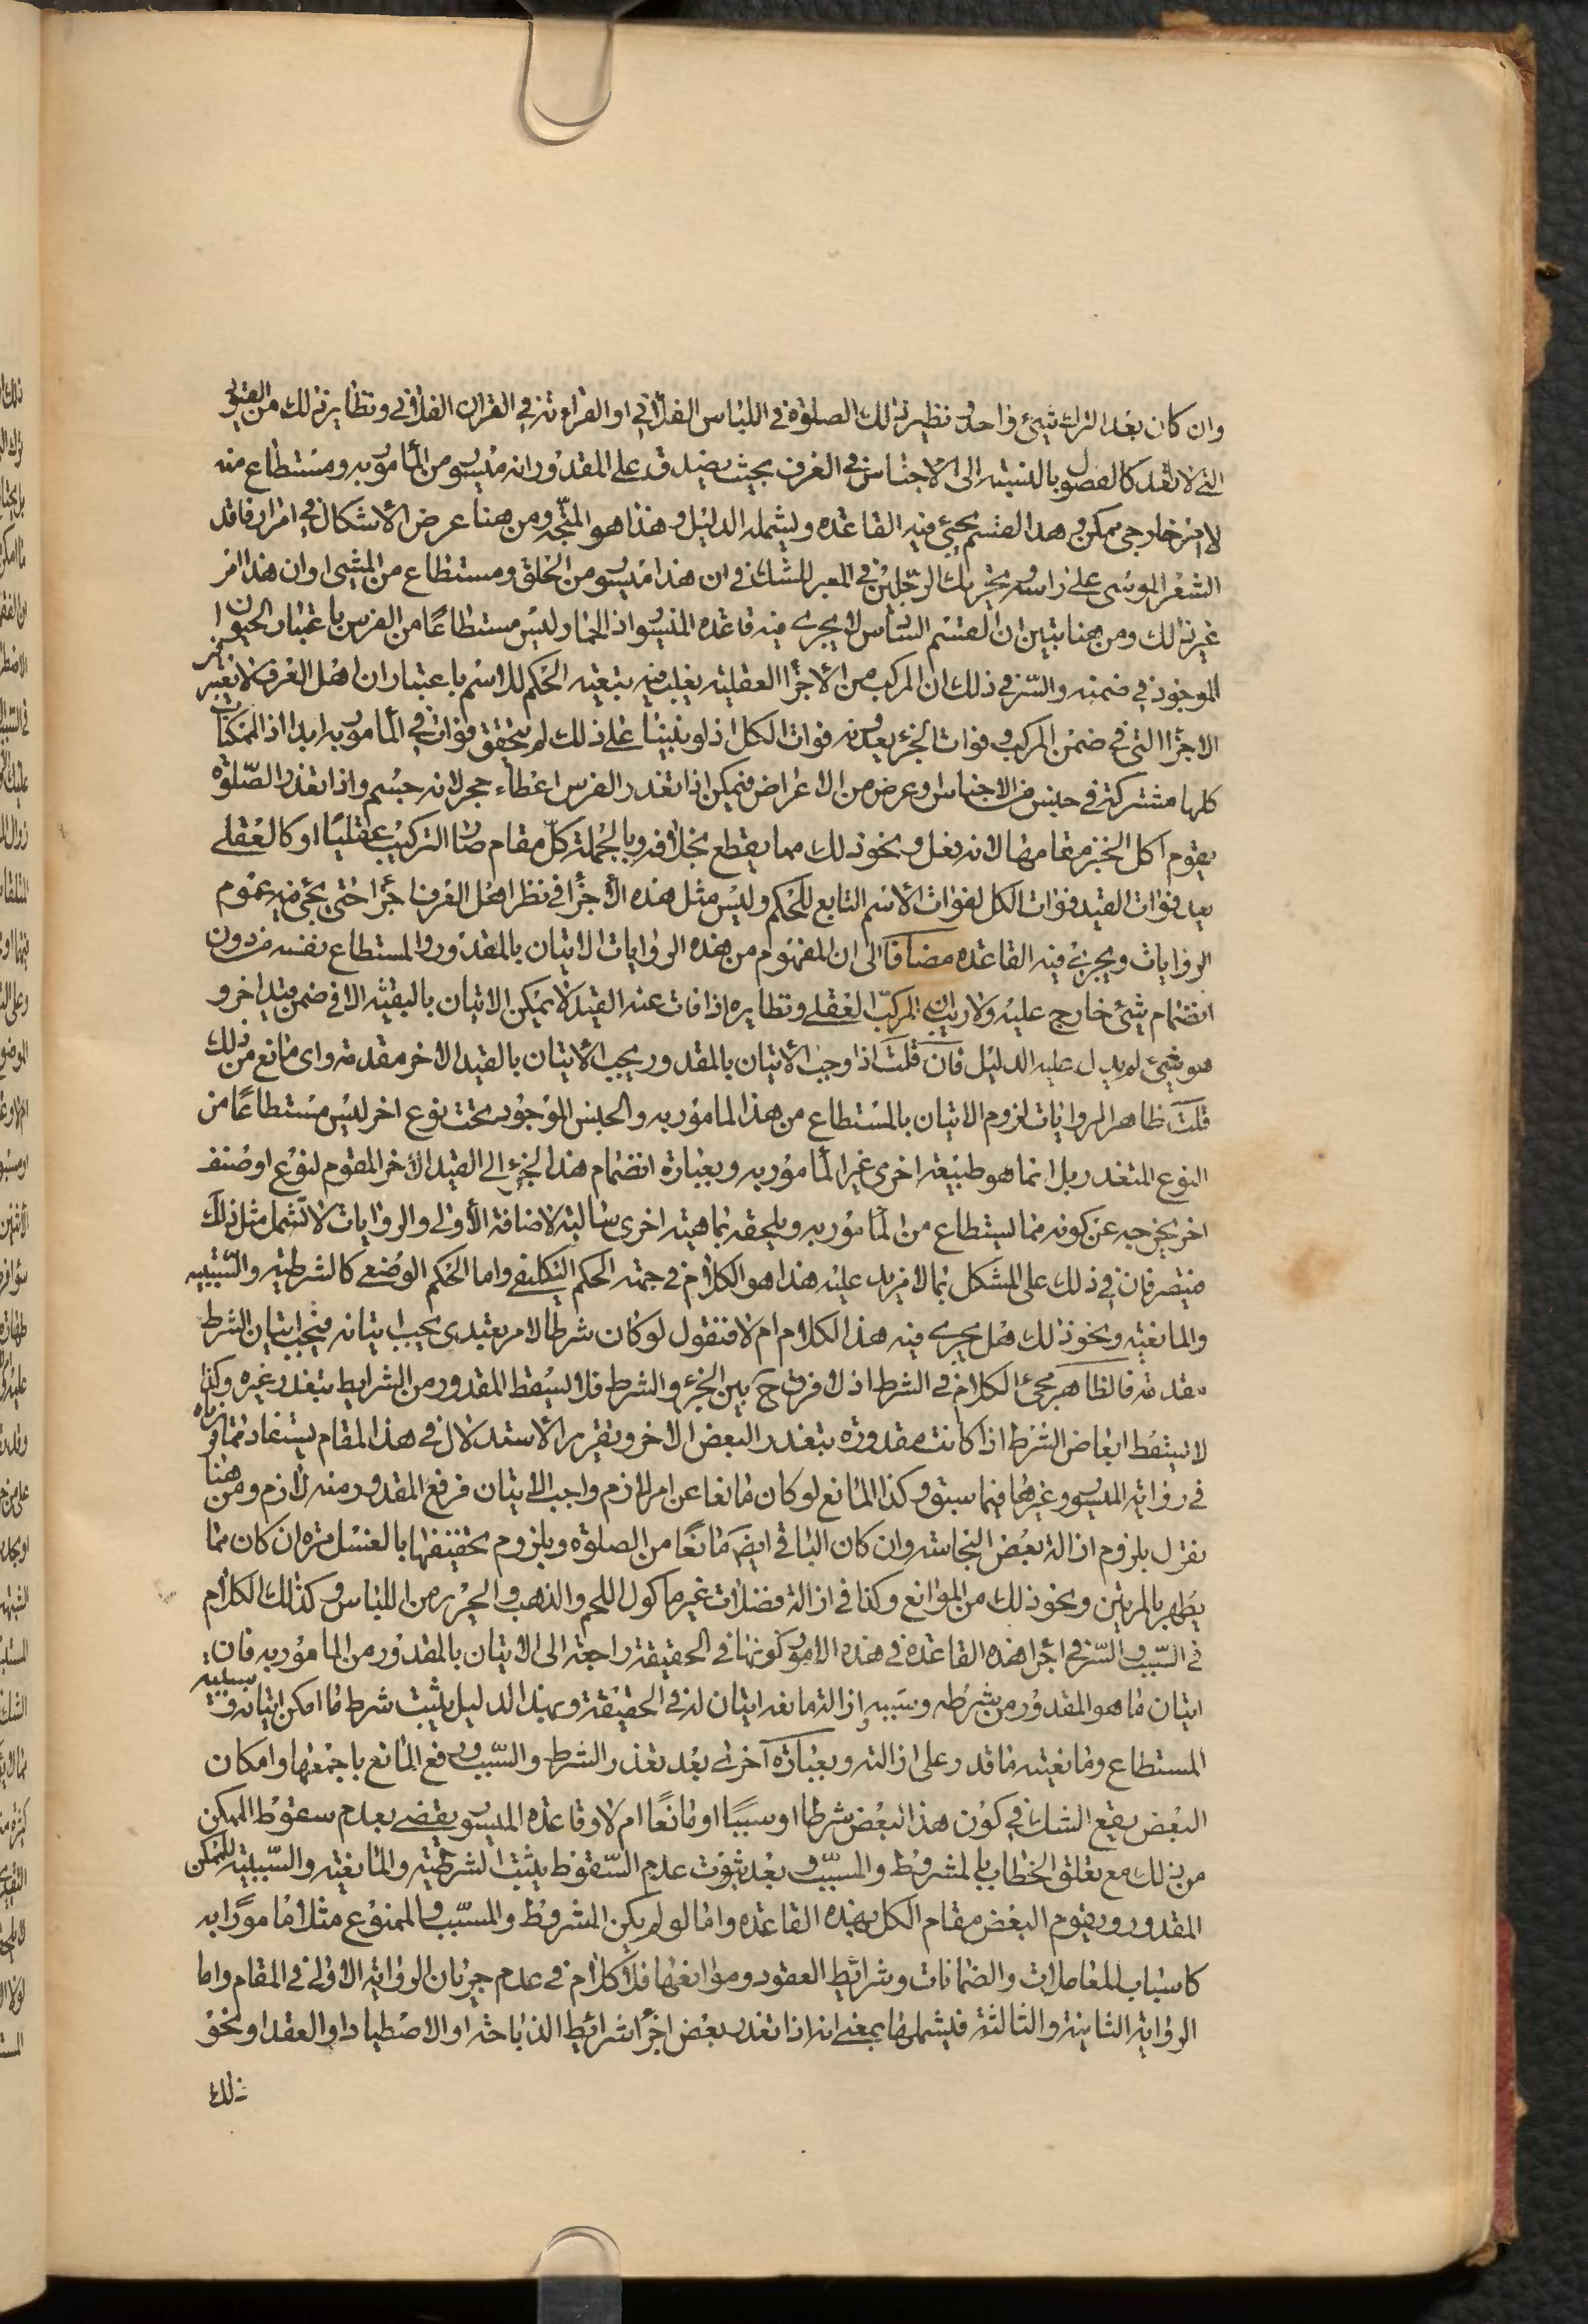 وان كان بعد الترك شيئ واحد نظير ذلك الصلوة في اللباس الفلاني او القراءة في القران الفلاني ونظاير ذلك من القيود
التي لا تعد كالفصول بالنسبة الى الاجناس في العرف بحيث يصدق على المقدور انه ميسور من المأمور به ومستطاع منه
لامر خارجي ممكن وهذا القسم يجيئ فيه القاعدة ويشمله الدليل وهذا هو المتجه ومن هنا عرض الأشكال في امرار فاقد
الشعر الموسى على راسه وتحريك الرجلين في المعبر للشك في ان هذا ميسور من الحلق ومستطاع من المشي او ان هذا امر
غير ذلك ومن هنا تبين ان القسم السادس لا يجري فيه قاعدة الميسور اذ الحمار ليس مستطاعًا من الفرس باعتبار الحيوان
الموجود في ضمنه والسر في ذلك ان المركب من الأجزا العقلية يغلب فيه تبعية الحكم للاسم باعتبار ان اهل العرف لا يعتبر
الاجزا التي في ضمن المركب وفوات الجزء يعدونه فوات الكل اذ لو بنينا على ذلك لم يتحقق فوات في المأمور به ابدا اذ الممكنات
كلها مشتركة في جنس من الاجناس وعرض من الاعراض فيمكن اذا تعذر الفرس اعطاء حجر لانه جسم واذا تعذر الصلوة
يقوم اكل الخبز مقامها لانه فعل ونحو ذلك مما يقطع بخلافه وبالجملة كل مقام صار التركيب عقليا او كالعقلي
يعد فوات القيد فوات الكل لفوات الأسم التابع للحكم وليس مثل هذه الأجزا في نظر اهل العرف اجزا حتى يجئ فيه عموم
الروايات ويجرئ فيه القاعدة مضافا الى ان المفهوم من هذه الروايات الاتيان بالمقدور والمستطاع نفسه من دون
انضمام شيئ خارج عليه ولا ريب ان المركب العقلي ونظايره اذا فات عنه القيد لا يمكن الاتيان بالبقية الا في ضمن قيد اخر و
هو شيئ لم يدل عليه الدليل فان قلت اذا وجب الأتيان بالمقدور يجب الأتيان بالقيد الاخر مقدمة واى مانع من ذلك
قلت ظاهر الروايات لزوم الاتيان بالمستطاع من هذا المامور به والجنس الموجود تحت نوع اخر ليس مستطاعًا من
النوع المتعذر بل انما هو طبيعة اخرى غير المأمور به وبعبارة انضمام هذا الجزء الى القيد الأخر المقوم لنوع او صنف
اخر يخرجه عن كونه مما يستطاع من المأمور به ويلحقه بماهية اخرى سالبة لاضافة الأولى والروايات لا تشمل مثل ذلك
منتصرفان في ذلك على المشكل بما لا مزيد عليه هذا هو الكلام في جهة الحكم التكليفي واما الحكم الوضعي كالشرطية والسببيه
والمانعية ونحو ذلك هل يجري فيه هذا الكلام ام لا فنقول لو كان شرطا لامر تعبدى يجب اتيانه فيجب اتيان الشرط
مقدمة فالظاهر مجئ الكلام في الشرط اذ لا فرق ح بين الجزء والشرط فلا يسقط المقدور من الشرايط بتعذر غيره وكذا
لا يسقط ابعاض الشرط اذا كانت مقدورة بتعذر البعض الاخر وتقرير الأستدلال في هذا المقام يستفاد مما قررناه
في رواية الميسور وغيرها فيما سبق وكذا المانع لو كان مانعا عن امر لازم واجب الاتيان فرفع المقدور منه لازم ومن هنا
نقول بلزوم ازالة بعض النجاسة وان كان الباقي ايضَ مانعًا من الصلوة ويلزوم تخفيفها بالغسل مرة ان كان مما
يطهر بالمرتين ونحو ذلك من الموانع وكذا في ازالة فضلات غير ماكول اللحم والذهب والحرير من اللباس وكذلك الكلام
في السبب والسر في اجرا هذه القاعدة في هذه الامور كونها في الحقيقة راجعة الى الاتيان بالمقدور من المامور به فان
اتيان ما هو المقدور من شرطه وسببه وازالة مانعه اتيان له في الحقيقة وبهذا الدليل يثبت شرط ما امكن اتيانه وسببية
المستطاع ومانعية ما قدر على ازالته وبعبارة آخرى بعد تعذر الشرط والسبب ورفع المانع باجمعها وامكان
البعض يقع الشك في كون هذا البعض شرطا او سببًا او مانعًا ام لا وقاعدة الميسور يقضي بعدم سقوط الممكن
من ذلك مع تعلق الخطاب بالمشروط والمسبب وبعد ثبوت عدم السقوط يثبت الشرطية والمانعية والسببية للممكن
المقدور ويقوم البعض مقام الكل بهذه القاعدة واما لو لم يكن المشروط والمسبب والممنوع مثلا مامورًا به
كاسباب المعاملات والضمانات وشرائط العقود وموانعها فلا كلام في عدم جريان الرواية الاولى في المقام واما
الرواية الثانية والثالثة فيشملها بمعنى انه اذا تعذر بعض اجزأ شرائط الذباحة او الاصطياد او العقد او نحو
ذلك